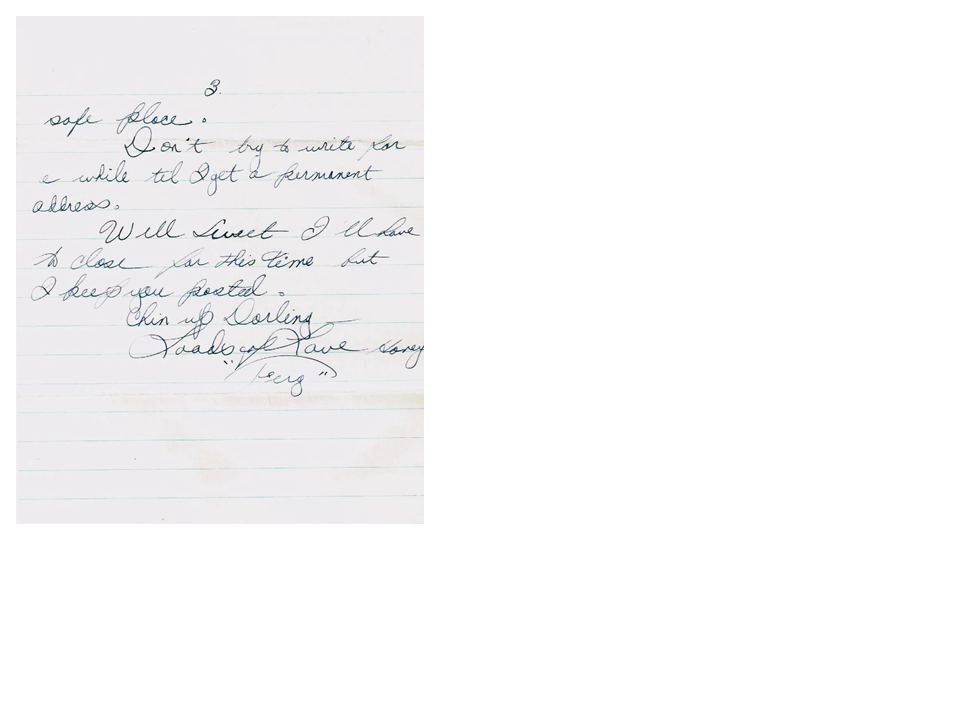 3.
safe place.
Don't try to write for
a while til I get a permanent
address.
Well Sweet I'll have
to close for this time but
I keep you posted.
Chin up Darling
Loads of Love Honey
"Ferg"